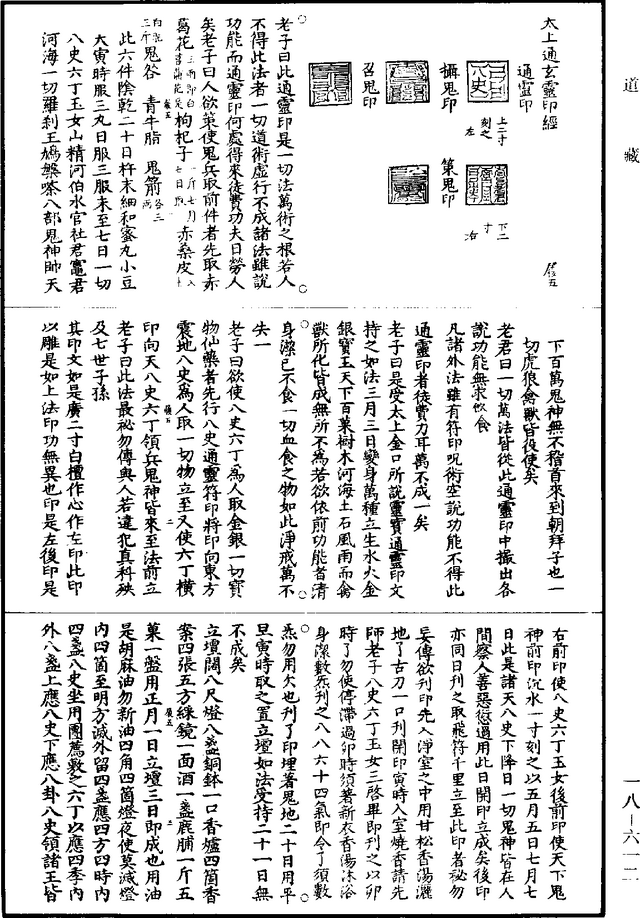 道藏
一八—六一二
太上通玄靈印經
通靈印
上二寸
刻之
左
攝鬼印
策鬼印
下二
寸
右
召鬼印
老子曰此通靈印是一切法萬術之根若人
不得此法者一切道術虛行不成諸法雖說
功能而通靈印何處得來徒費功夫日勞人
矣老子曰人欲策使鬼兵取前件者先取赤
葛花 枸杞子 赤桑皮
鬼谷 青牛脂 鬼箭
此六件陰乾二十日杵末細和蜜丸小豆
大寅時服三丸日服三服未至七日一切
八史六丁玉女山精河伯水官社君竈君
河海一切羅刹王鳩槃荼八部鬼神帥天
下百萬鬼神無不稽首來到朝拜子也一
切虎狼禽獸皆役使矣
老君曰一切萬法皆從此通靈印中撮出各
說功能無求飲食
凡諸外法雖有符印呪術空說功能不得此
通靈印者徒費力耳萬不成一矣
老子曰是受太上金口所說靈寶通靈印文
持之如法三月三日變身萬種立生水火金
銀寶玉天下百菓樹木河海土石風雨而禽
獸所化皆成無所不為若欲依前功能者清
身潔己不食一切血食之物如此淨戒萬不
失一
老子曰欲使八史六丁為人取金銀一切寶
物仙藥者先行八史通靈符印將印向東方
震地八史為人取一切物立至又使六丁橫
印向天八史六丁領兵鬼神皆來至法前立
老子曰此法最祕勿傳與人若違犯真科殃
及七世子孫
其印文如是廣二寸白檀作心作左印此印
以雕是如上法印功無異也印是左後印是
右前印使八史六丁玉女後前印使天下鬼
神前印沉水一寸刻之以五月五日七月七
日此是諸天八史下降日一切鬼神皆在人
間察人善惡愆過用此日開印立成矣後印
亦同日刊之取飛符千里立至此印者秘勿
妄傳欲刊印先入淨室之中用甘松香湯灑
地了古刀一口刊開印寅時入室燒香請先
師老子八史六丁玉女三啓畢即刊之以卯
時了勿使停滯過卯時須著新衣香湯沐浴
身潔數炁刊之八八六十四氣即令了須數
炁勿用欠也刊了印埋著鬼地二十日用平
旦寅時取之置立壇如法受持二十一日無
不成矣
立壇闊八尺燈八盞銅鉢一口香爐四箇香
案四張五方綵鏡一面酒一盞鹿脯一斤五
菓一盤用正月一日立壇三日即成也用油
是胡麻油勿新油四角四箇燈夜使莫滅燈
內四箇至明方滅外留四盞應四方四時內
四盞八史坐用團薦數之六丁以應四季內
外八盞上應八史下應八卦八史領諸王皆